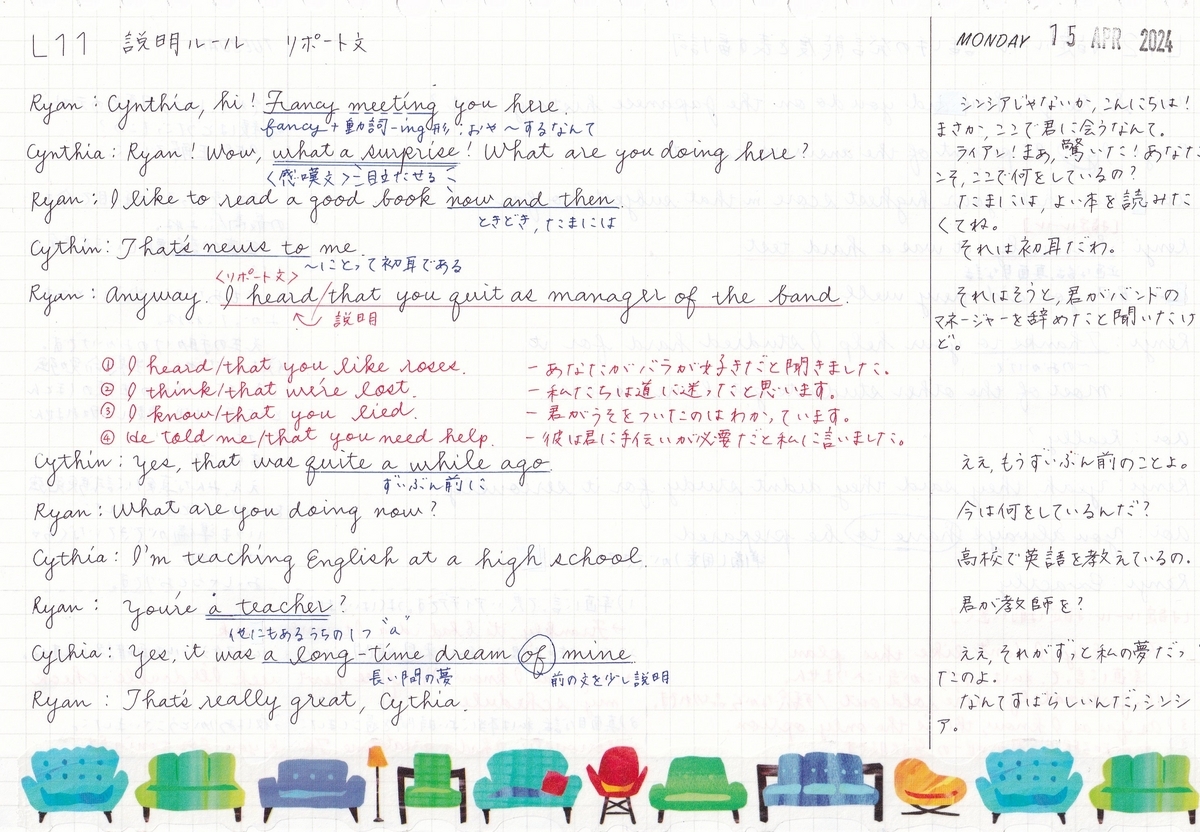 L11 説明ルール リポート文
MONDAY 15 APR 2024
Ryan : Cynthia, hi! Fancy meeting you here.
fancy + 動詞-ing形 : おや~するなんて
シンシアじゃないか, こんにちは!
まさか, ここで君に会うなんて。
Cynthia : Ryan! Wow, what a surprise! What are you doing here?
〈感嘆文〉=目立たせる
ライアン!まあ, 驚いた!あなた
こそ, ここで何をしているの?
Ryan : I like to read a good book now and then
ときどき, たまには
たまには, よい本を読みた
くてね。
Cythin : That's news to me.
~にとって初耳である
それは初耳だわ。
〈リポート文〉
Ryan : Anyway. I heard/that you quit as manager of the band.
説明
それはそうと, 君がバンドの
マネージャーを辞めたと聞いたけ
ど。
① I heard/that you like roses. - あなたがバラが好きだと聞きました。
② I think/that we're lost. - 私たちは道に迷ったと思います。
③ I know/that you lied. - 君がうそをついたのはわかっています。
④ He told me/that you need help. - 彼は君に手伝いが必要だと私に言いました。
Cythin : Yes, that was quite a while ago.
ずいぶん前に
ええ, もうずいぶん前のことよ。
Ryan : What are you doing now?
今は何をしているんだ?
Cythia : I'm teaching English at a high school.
高校で英語を教えているの.
Ryan : You're a teacher?
他にもあるうちの1つ "a"
君が教師を?
Cythia : Yes, it was a long-time dream of mine.
長い間の夢 前の文を少し説明
ええ, それがずっと私の夢だっ
たのよ。
Ryan : That's really great, Cythia.
なんてすばらしいんだ, シンシ
ア。